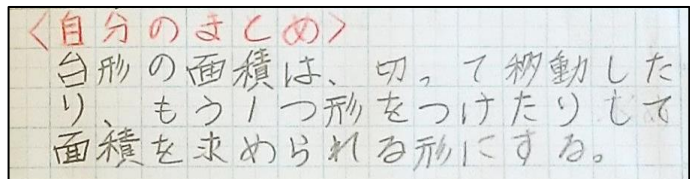 <自分のまとめ>
台形の面積は、切って移動した
り、もう1つ形をつけたりして
面積を求められる形にする。